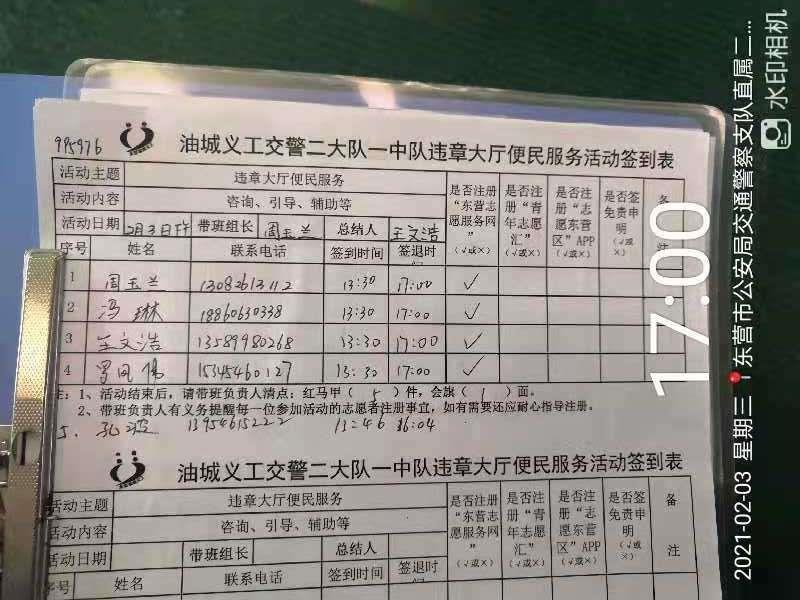 995976
油城义工交警二大队一中队违章大厅便民服务活动签到表
活动主题 违章大厅便民服务 是否注册“东营志愿服务网”(√或×) 是否注册“青年志愿汇”(√或×) 是否注册“志愿东营区”APP(√或×) 是否签免责申明(√或×) 备注
活动内容 咨询、引导、辅助等
活动日期 2月3日下午 带班组长 周玉兰 总结人 王文浩
序号 姓名 联系电话 签到时间 签退时间
1 周玉兰 13082613112 13:30 17:00 ✓
2 冯琳 18860630338 13:30 17:00 ✓
3 王文浩 13589980268 13:30 17:00 ✓
4 15345460127 13:30 17:00 ✓
注：1、活动结束后，请带班负责人清点：红马甲（5）件，会旗（1）面。
2、带班负责人有义务提醒每一位参加活动的志愿者注册事宜，如有需要还应耐心指导注册。
5. 孔波 13954615222 13:46 16:04
油城义工交警二大队一中队违章大厅便民服务活动签到表
活动主题 违章大厅便民服务 是否注册“东营志愿服务网”(√或×) 是否注册“青年志愿汇”(√或×) 是否注册“志愿东营区”APP(√或×) 是否签免责申明(√或×) 备注
活动内容 咨询、引导、辅助等
活动日期 带班组长 总结人
序号 姓名 联系电话 签到时间 签退时
17:00
2021-02-03 星期三 东营市公安局交通警察支队直属二...
水印相机